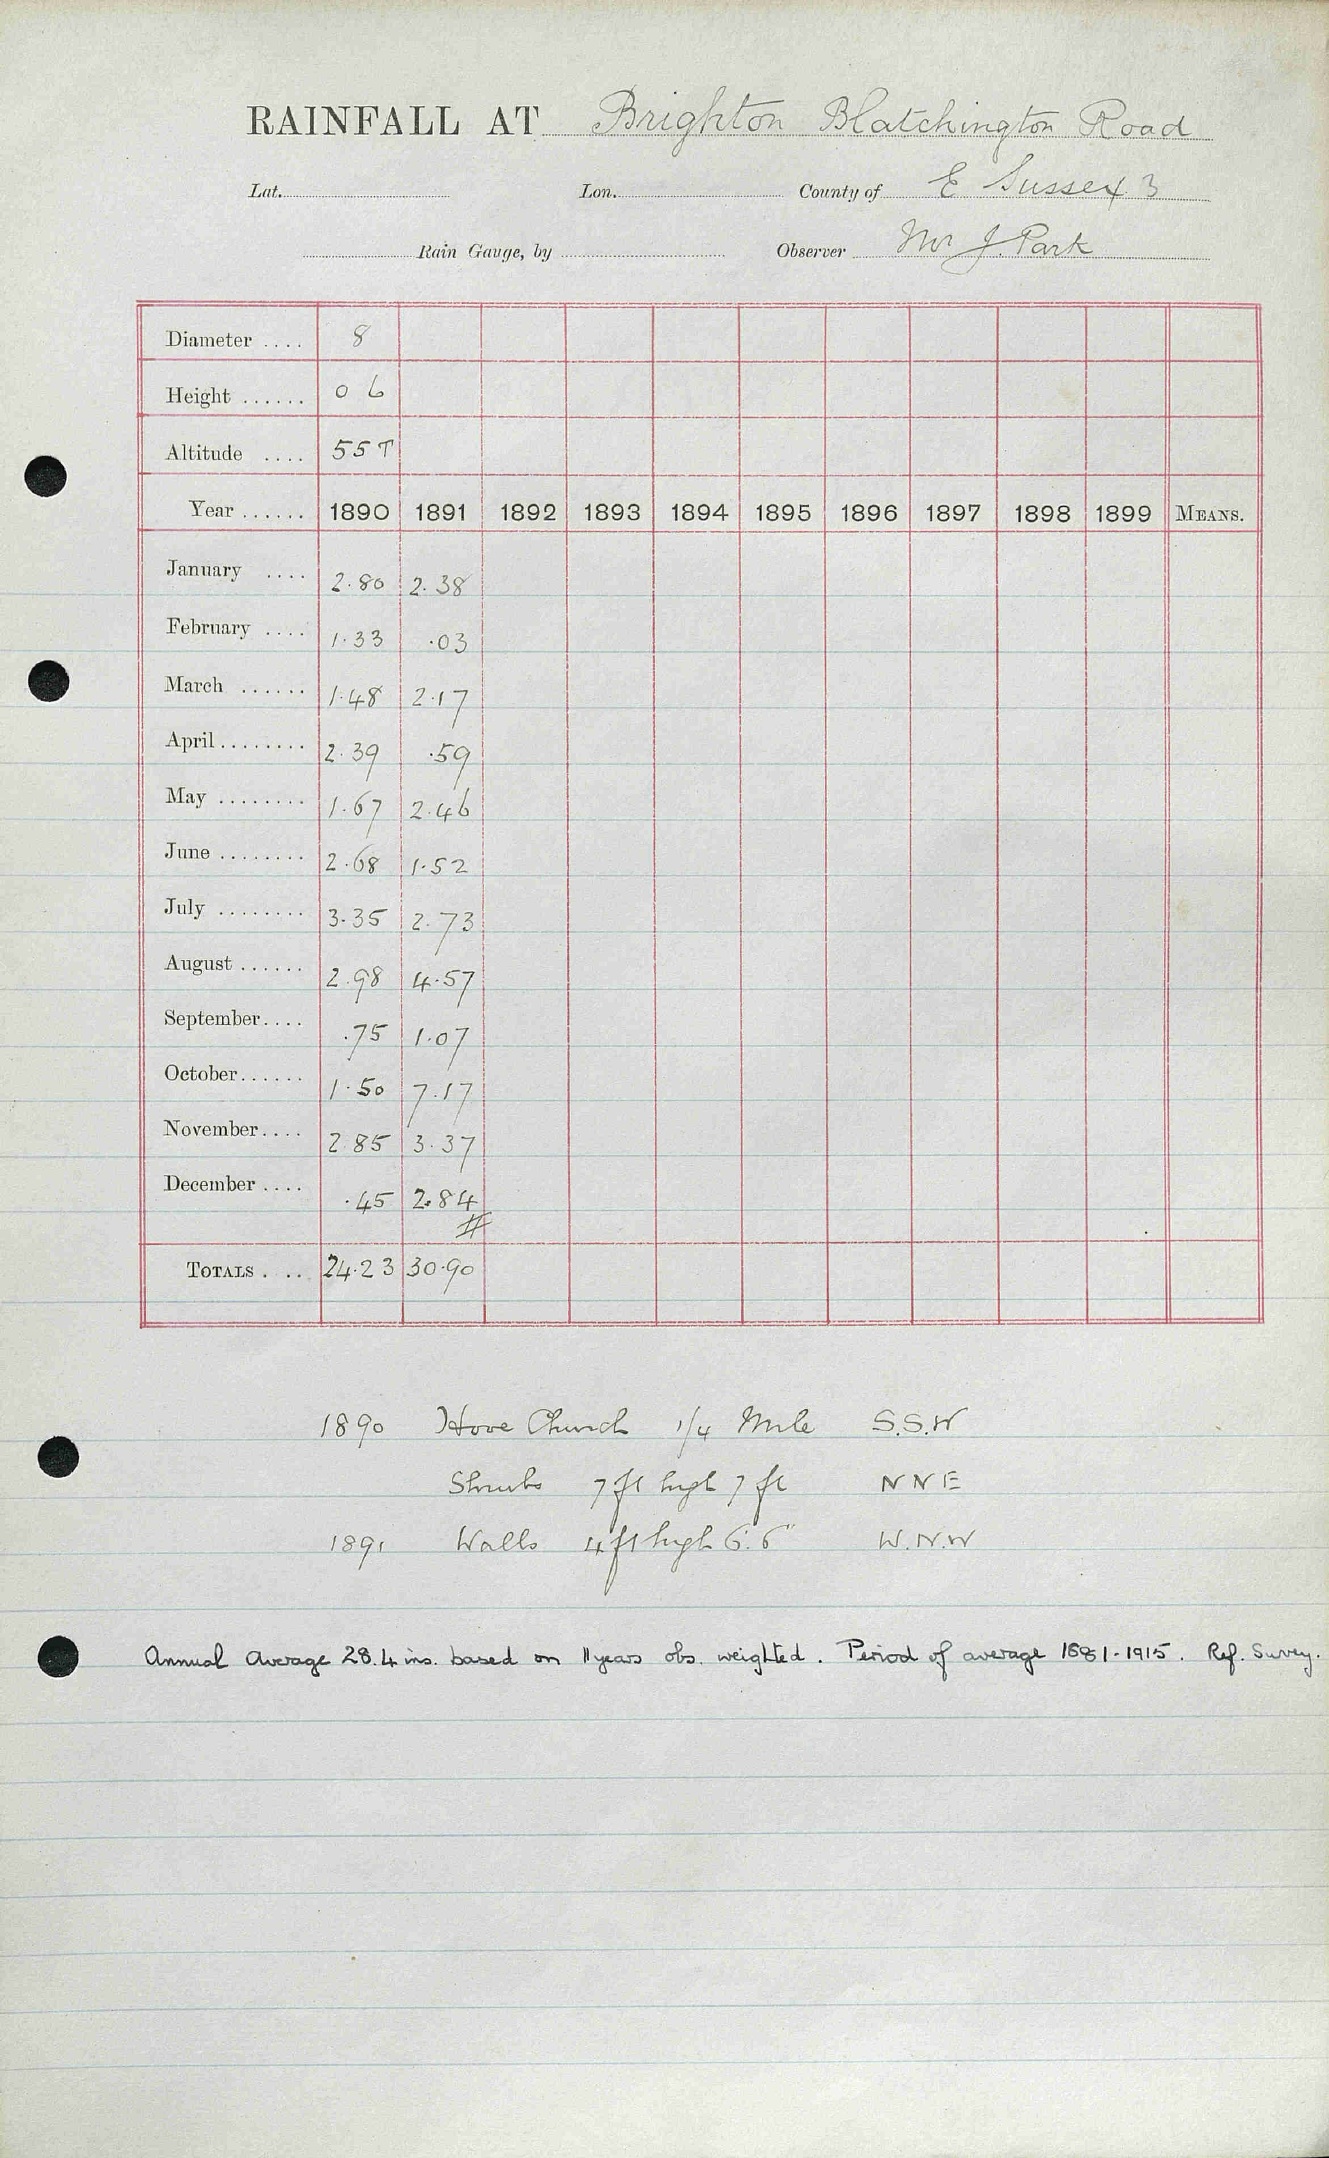 RAINFALL AT Brighton Blatchington Road
Lat. Lon. County of E Sussex 3
Rain Gauge, by Observer Mr J. Park
Diameter .... 8
Height ...... 0 6
Altitude .... 55T
Year ...... 1890 1891 1892 1893 1894 1895 1896 1897 1898 1899 MEANS.
January .... 2.80 2.38
February .... 1.33 .03
March ...... 1.48 2.17
April ........ 2.39 .59
May ........ 1.67 2.46
June ........ 2.68 1.52
July ........ 3.35 2.73
August ...... 2.98 4.57
September.... .75 1.07
October...... 1.50 7.17
November.... 2.85 3.37
December .... .45 2.84
TOTALS . .. 24.23 30.90
1890 Hove Church 1/4 Mile S.S.W
Shrubs 7 ft high 7 ft N N E
1891 Walls 4 ft high 6'.6" W.N.W
Annual average 28.4 ins. based on 11 years obs. weighted. Period of average 1881-1915. Ref. Survey.